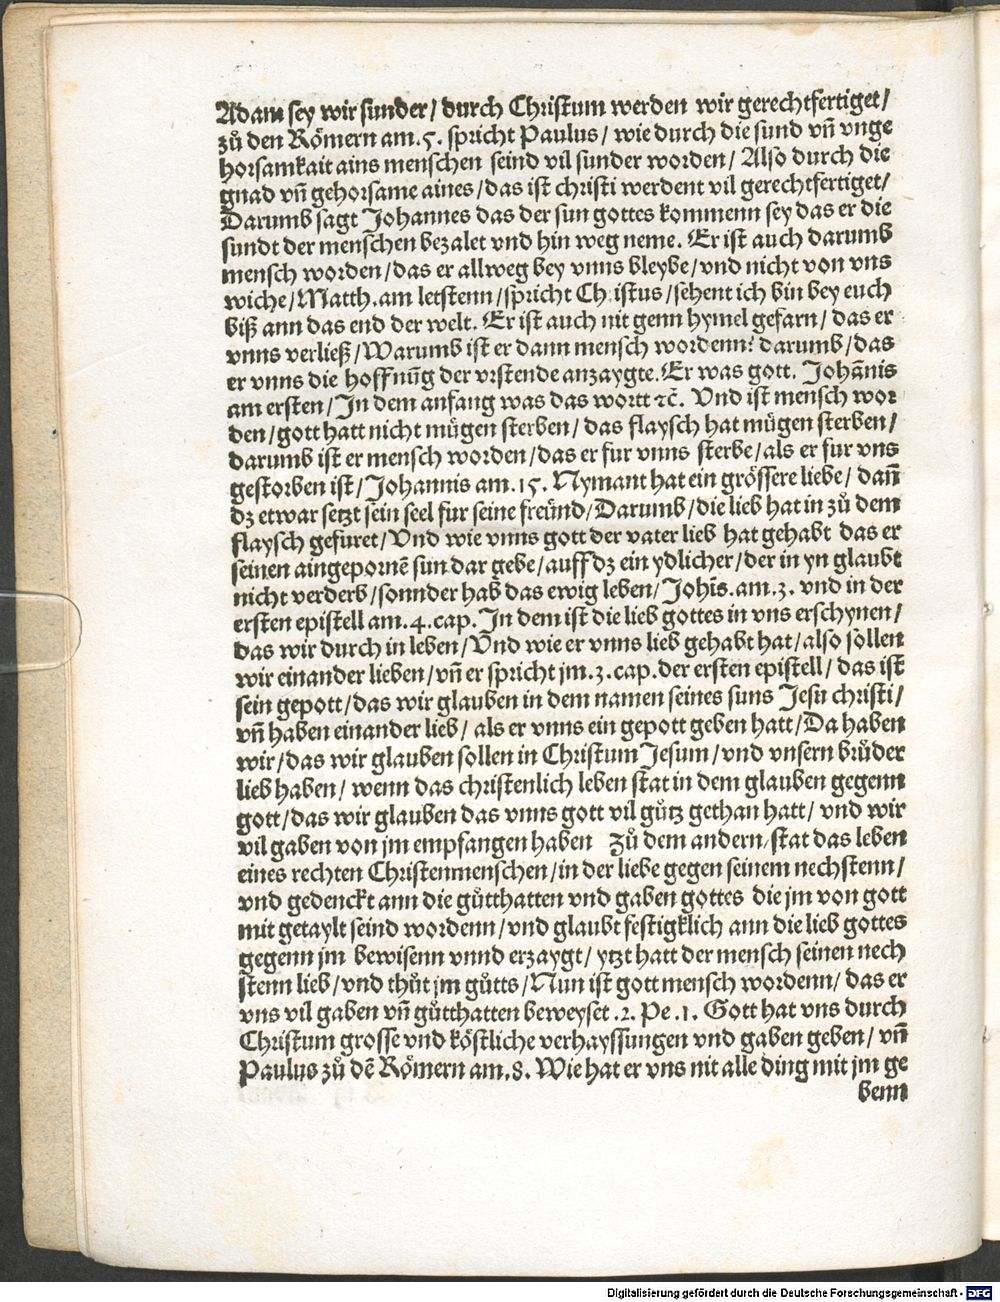 Adam sey wir sunder/ durch Christum werden wir gerechtfertiget/
zů den Römern am .5. spricht Paulus/ wie durch die sund vñ vnge
horsamkait ains menschen seind vil sunder worden/ Also durch die
gnad vñ gehorsame aines/ das ist christi werdent vil gerechtfertiget/
Darumb sagt Johannes das der sun gottes kommenn sey das er die
sundt der menschen bezalet vnd hin weg neme. Er ist auch darumb
mensch worden/ das er allweg bey vnns bleybe/ vnd nicht von vns
wiche/ Matth. am letstenn/ spricht Christus/ sehent ich bin bey euch
biß ann das end der welt. Er ist auch nit genn hymel gefarn/ das er
vnns verließ/ Warumb ist er dann mensch wordenn? darumb/ das
er vnns die hoffnũg der vrstende anzaygte. Er was gott. Johãnis
am ersten/ In dem anfang was das wortt ⁊c̃. Vnd ist mensch wor
den/ gott hatt nicht mügen sterben/ das flaysch hat mügen sterben/
darumb ist er mensch worden/ das er fur vnns sterbe/ als er fur vns
gestorben ist/ Johannis am .15. Nymant hat ein grössere liebe/ dañ
dz etwar setzt sein seel fur seine freünd/ Darumb/ die lieb hat in zů dem
flaysch gefuret/ Vnd wie vnns gott der vater lieb hat gehabt das er
seinen aingepornẽ sun dar gebe/ auff dz ein ydlicher/ der in yn glaubt
nicht verderb/ sonnder hab das ewig leben/ Johis̃. am .3. vnd in der
ersten epistell am .4. cap. In dem ist die lieb gottes in vns erschynen/
das wir durch in leben/ Vnd wie er vnns lieb gehabt hat/ also sollen
wir einander lieben/ vñ er spricht jm .3. cap. der ersten epistell/ das ist
sein gepott/ das wir glauben in dem namen seines suns Jesu christi/
vñ haben einander lieb/ als er vnns ein gepott geben hatt/ Da haben
wir/ das wir glauben sollen in Christum Jesum/ vnd vnsern brůder
lieb haben/ wenn das christenlich leben stat in dem glauben gegenn
gott/ das wir glauben das vnns gott vil gůtz gethan hatt/ vnd wir
vil gaben von jm empfangen haben zů dem andern/ stat das leben
eines rechten Christenmenschen/ in der liebe gegen seinem nechstenn/
vnd gedenckt ann die gůtthatten vnd gaben gottes die jm von gott
mit getaylt seind wordenn/ vnd glaubt festigklich ann die lieb gottes
gegenn jm bewisenn vnnd erzaygt/ ytzt hatt der mensch seinen nech
stenn lieb/ vnd thůt jm gůtts/ Nun ist gott mensch wordenn/ das er
vns vil gaben vñ gůtthatten beweyset .2. Pe. 1. Gott hat vns durch
Christum grosse vnd köstliche verhayssungen vnd gaben geben/ vñ
Paulus zů dẽ Römern am .8. Wie hat er vns nit alle ding mit jm ge
benn
Digitalisierung gefördert durch die Deutsche Forschungsgemeinschaft - DFG